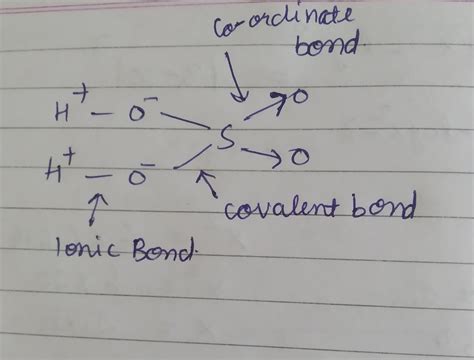 Co-ordinate
bond.
H⁺ – O⁻ S → O
H⁺ – O⁻ → O
covalent bond
Ionic Bond.